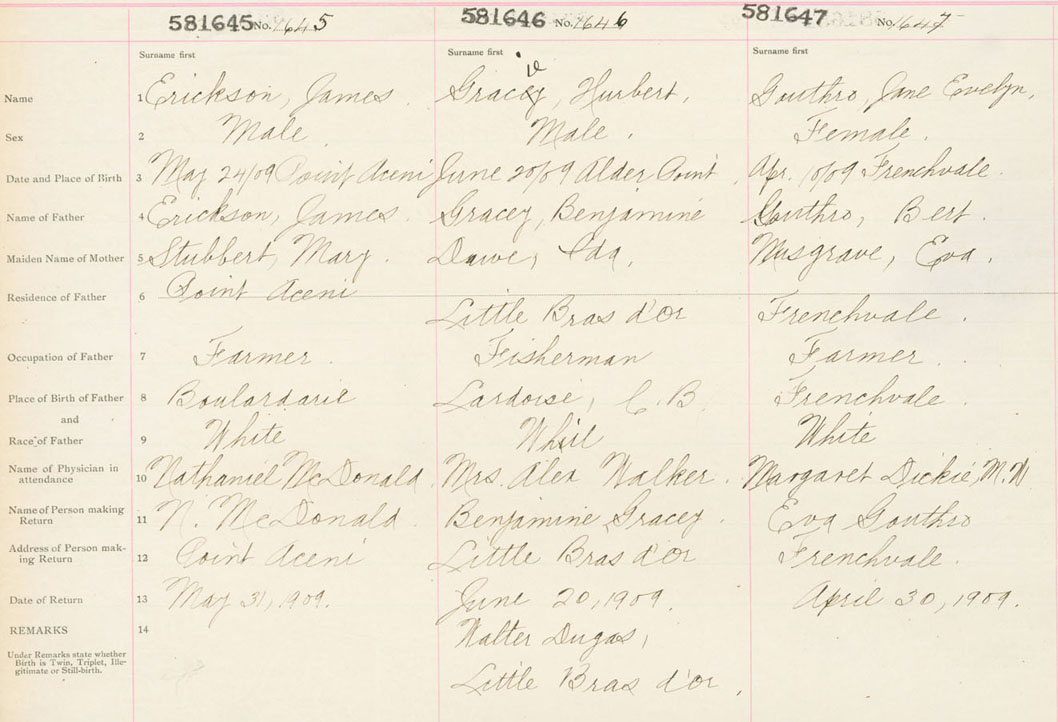 581645 No. 1645 581646 No. 1646 581647 No. 1647
Surname first Surname first Surname first
ie
Name 1 Erickson, James. Gracey, Hurbert. Gouthro, Jane Evelyn.
Sex 2 Male. Male. Female.
Date and Place of Birth 3 May 24/09 Point Aceni June 20/09 Alder Point. Apr. /09 Frenchvale.
Name of Father 4 Erickson, James. Gracey, Benjamine Gouthro, Bert.
Maiden Name of Mother 5 Stubbert, Mary. Dawe, Ida. Musgrave, Eva.
Residence of Father 6 Point Aceni Little Bras d'or Frenchvale.
Occupation of Father 7 Farmer. Fisherman Farmer.
Place of Birth of Father 8 Boulardarie Lardoise, C.B. Frenchvale.
and
Race of Father 9 White White White
Name of Physician in
attendance 10 Nathaniel McDonald Mrs. Alex Walker. Margaret Dickie, M.W
Name of Person making
Return 11 N. McDonald. Benjamine Gracey. Eva Gouthro
Address of Person mak-
ing Return 12 Point Aceni Little Bras d'or Frenchvale.
Date of Return 13 May 31, 1909. June 20, 1909. April 30, 1909.
REMARKS 14 Walter Dugas,
Under Remarks state whether
Birth is Twin, Triplet, Ille-
gitimate or Still-birth.
Little Bras d'or.